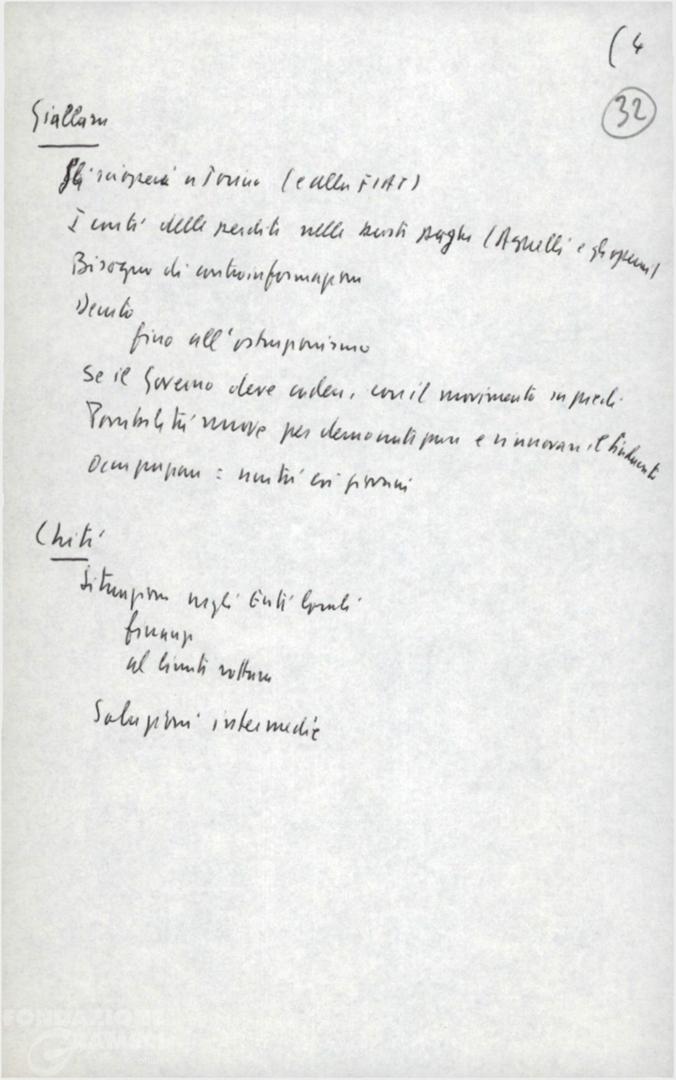 (4
32
Giallara
Gli scioperi a Torino (e alla FIAT)
I conti delle perdite nelle buste paga (Agnelli e gli operai)
Bisogno di controinformazione
Decreto
fino all'ostruzionismo
Se il Governo deve cadere, con il movimento in piedi.
Possibilità nuove per democratizzare e rinnovare il Sindacato
Occupazione: nostri coi giovani
Chiti
Situazione negli Enti locali
finanz
al limite rottura
Soluzioni intermedie
FONDAZIONE
GRAMSCI